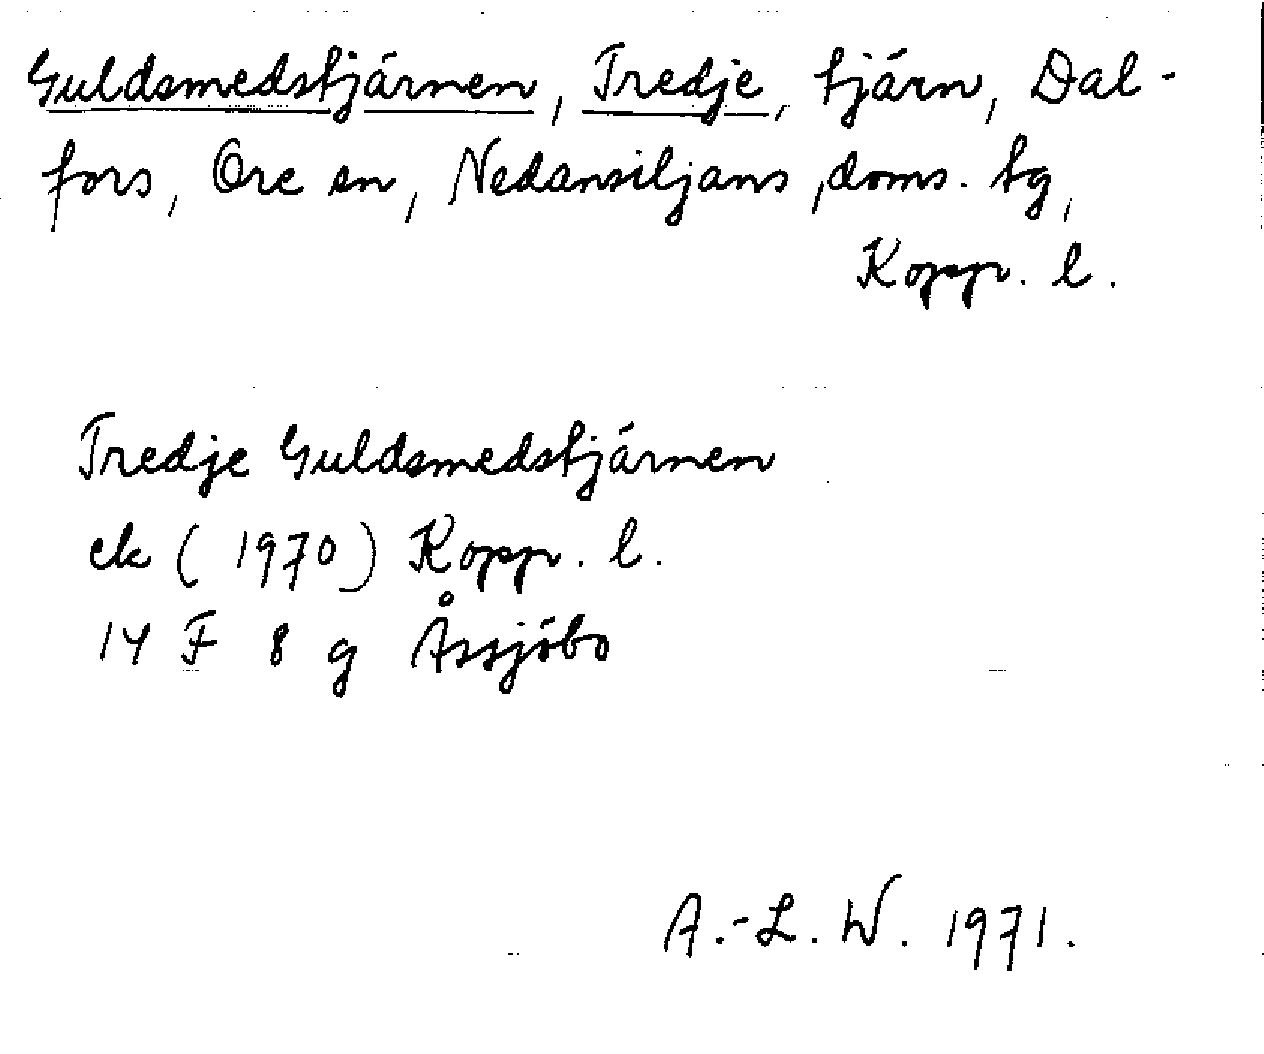 Guldsmedstjärnen, Tredje, tjärn, Dal-
fors, Ore sn, Nedansiljans doms. tg,
Kopp. l.
Tredje Guldsmedstjärnen
ek (1970) Kopp. l.
14 F 8 g Åssjöbo
A.-L. W. 1971.